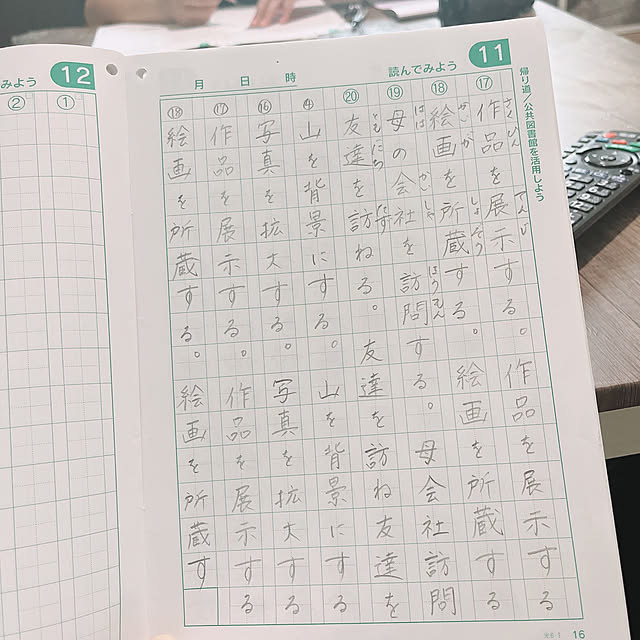 帰り道/公共図書館を活用しよう
11
読んでみよう
月 日 時
⑰
さくひん てんじ
作品を展示する。作品を展示する
⑱
かいが しょぞう
絵画を所蔵する。絵画を所蔵する
⑲
はは かいしゃ ほうもん
母の会社を訪問する。母会社訪問
⑳
ともだち たず
友達を訪ねる。友達を訪ね友達を
④
山を背景にする。山を背景にする
⑯
写真を拡大する。写真を拡大する
⑰
作品を展示する。作品を展示する
⑱
絵画を所蔵する。絵画を所蔵す
16
12
みよう
①
②